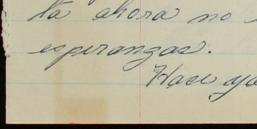 ta ahora no
esperanzas.
Hace ya